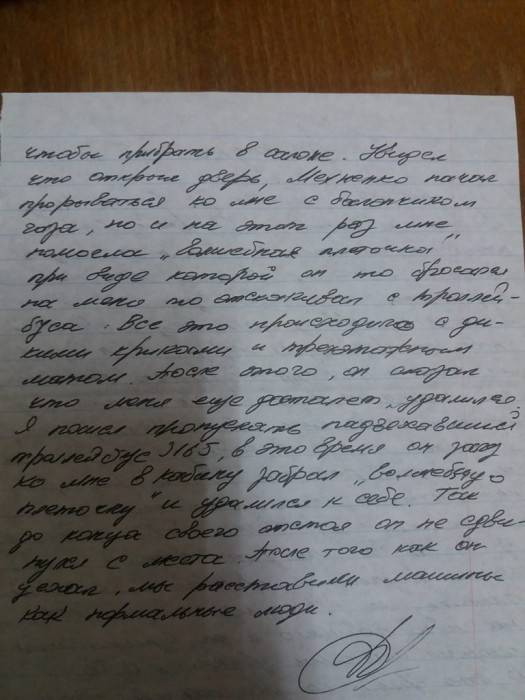 чтобы прибрать в салоне. Увидел
что открыл дверь, начал
прорываться ко мне с балончиком
газа, но и на этот раз мне
помогла „волшебная плёточка"
при виде которой он то бросался
на меня то отскакивал с троллей-
буса. Всё это происходило с ди-
кими криками и трехэтажным
матом. После этого, он сказал
что меня еще достанет, удалился.
Я пошел пропускать подъехавший
троллейбус 3165, в это время он
ко мне в кабину забрал „волшебную
плеточку" и удалился к себе. Так
до конца своего отстоя он не сдви-
нулся с места. После того как он
уехал, мы расставили машины
как нормальные люди.